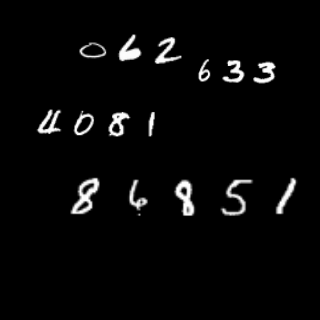 062
633
4081
86851